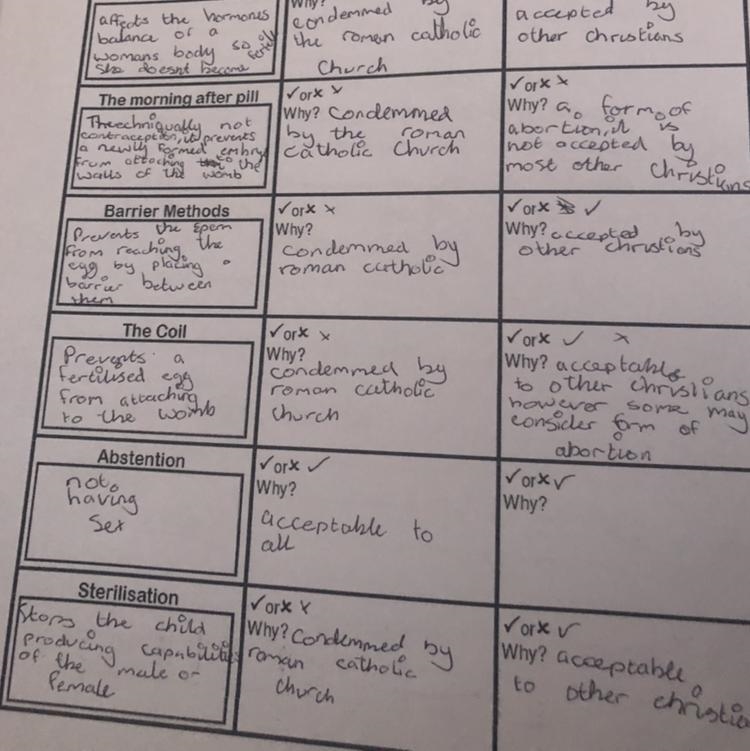 affects the hormones
balance of a
womans body so fertile
she doesnt become
Why?
condemmed by
the roman catholic
Church
accepted by
other christians
The morning after pill
Theechniqually not
contraception, it prevents
a newly formed embryo
from attaching to the
walls of the womb
✓orx x
Why? Condemmed
by the roman
catholic Church
✓orx x
Why? a form of
abortion, it is
not accepted by
most other Christians
Barrier Methods
Prevents the sperm
from reaching the
egg by placing a
barrier between
them
✓orx x
Why?
condemmed by
roman catholic
✓orx ✓
Why? accepted by
other christians
The Coil
Prevents a
fertilised egg
from attaching
to the womb
✓orx x
Why?
condemmed by
roman catholic
church
✓orx ✓ x
Why? acceptable
to other christians
however some may
consider form of
abortion
Abstention
not
having
sex
✓orx ✓
Why?
acceptable to
all
✓orx ✓
Why?
Sterilisation
Stops the child
producing capabilities
of the male or
female
✓orx x
Why? Condemmed by
roman catholic
church
✓orx ✓
Why? acceptable
to other christians